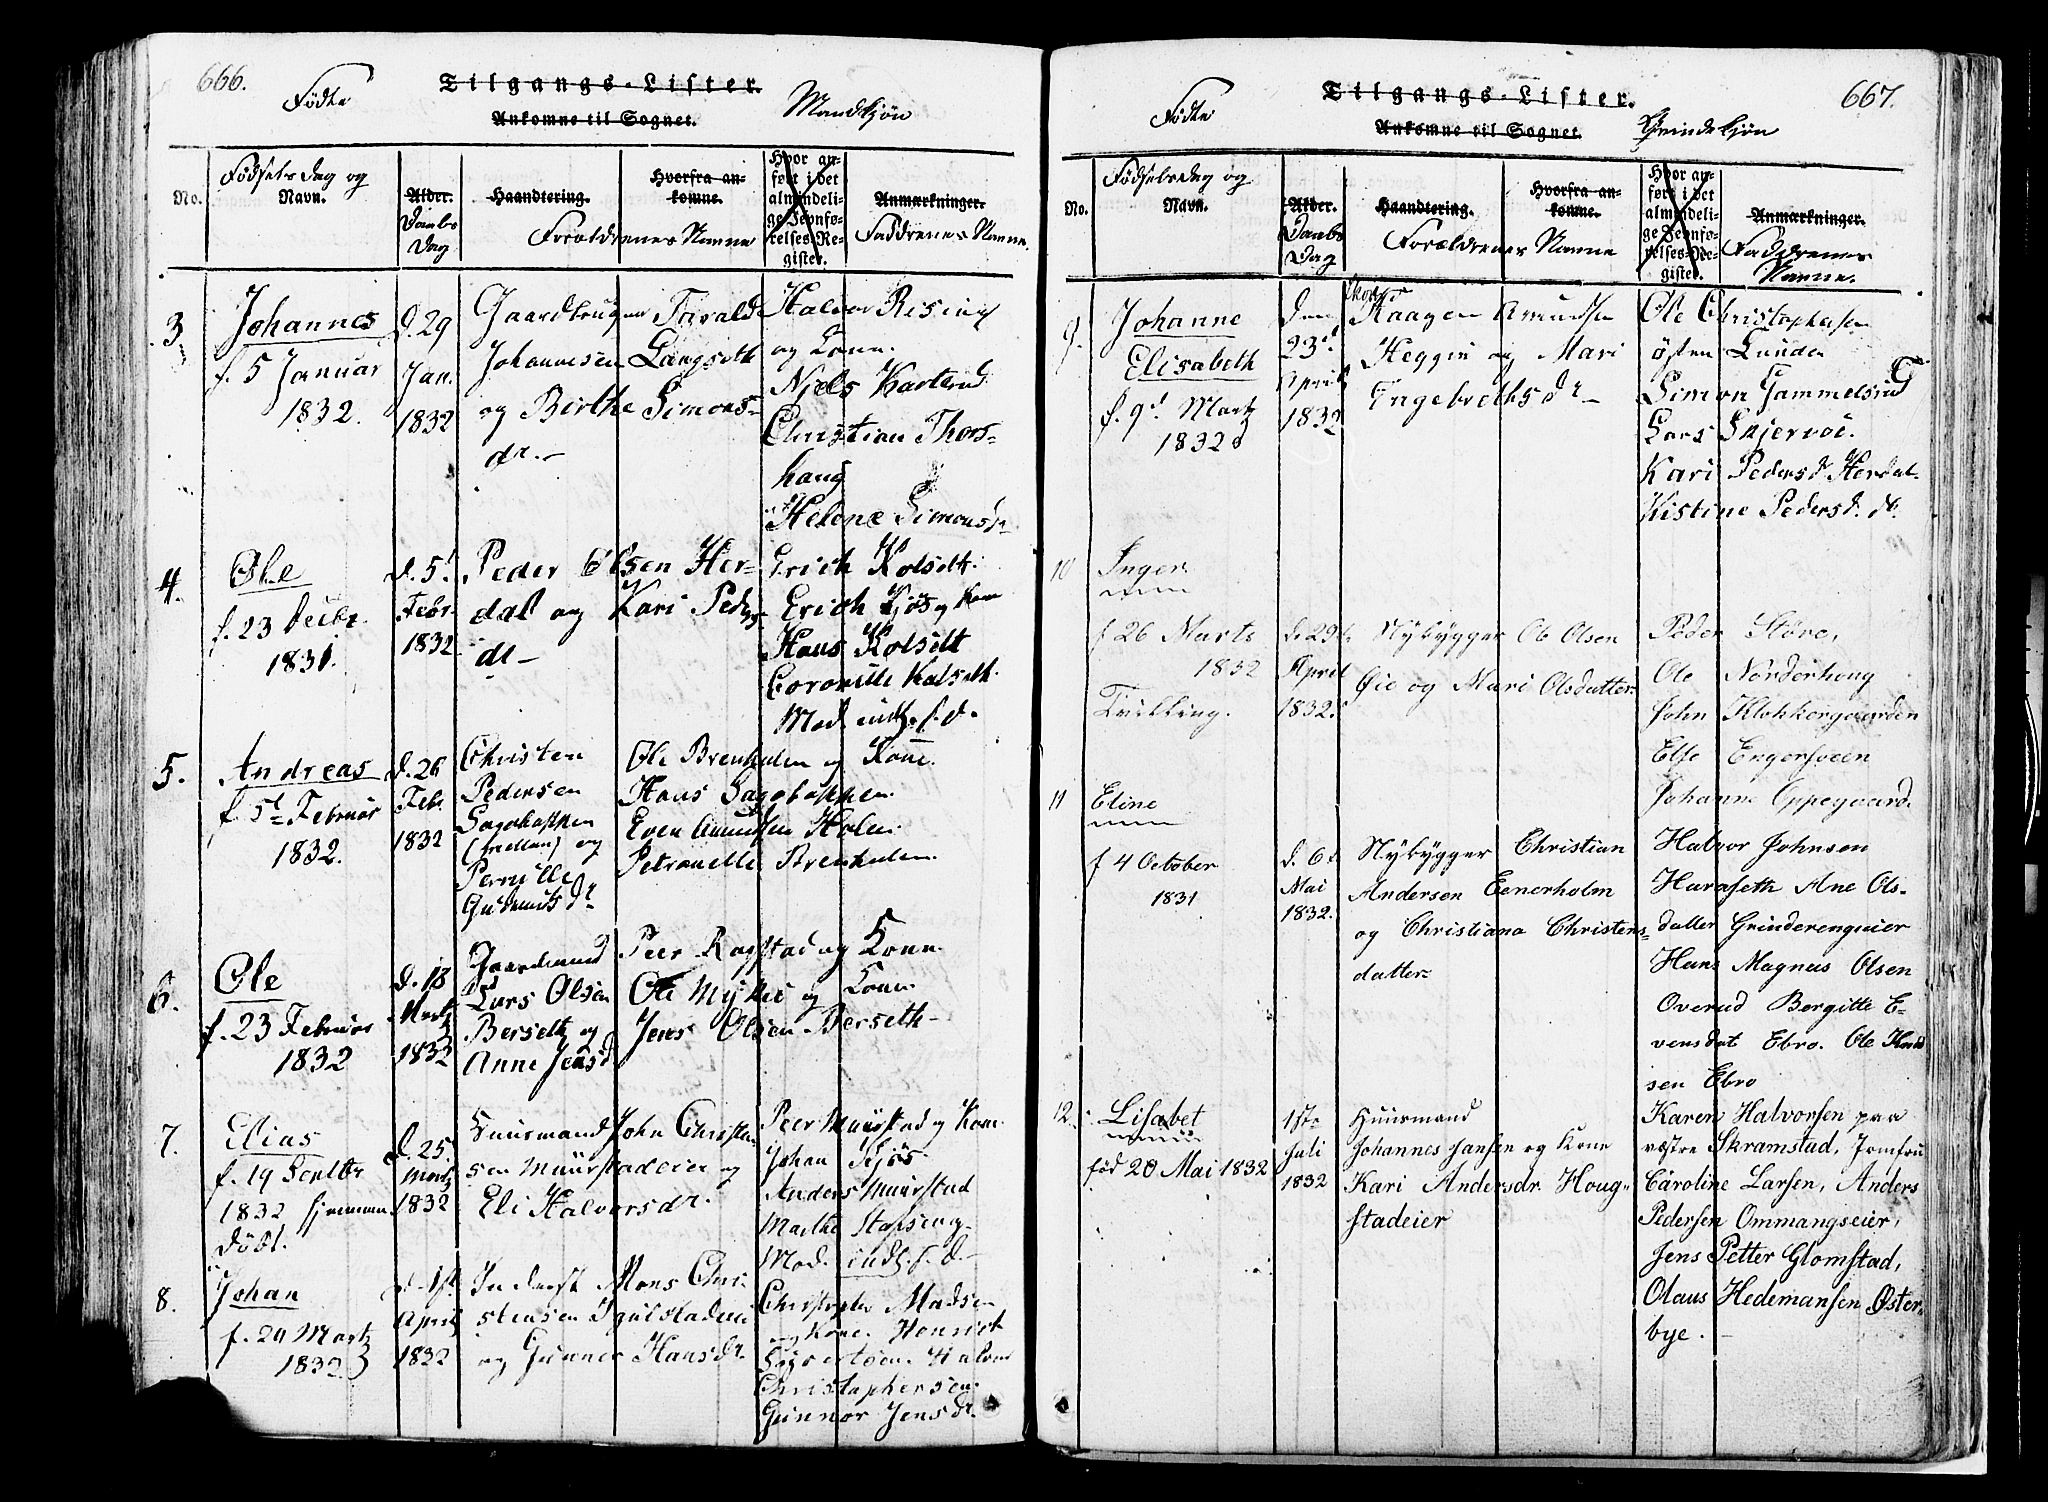 666.
Fødte
Tilgangs-Lister.
Mandkjøn
Ankomne til Sognet.
No.
Fødselsdag og
Navn.
Alder.
Daabs
Dag
Haandtering.
Hvorfra an-
komne.
Forældrenes Navne
Hvor an-
ført i det
almindeli-
ge Jevnfø-
relses-Re-
gister.
Anmærkninger.
Faddrenes Navne
3
Johannes
f. 5 Januar
1832.
d. 29
Jan.
1832
Gaardbruger
Johannesen Langseth
og Birthe Simons-
dr.
Halvor Rising
og Kone.
Niels
Christian Thors-
haug
Helene Simonsd
4.
Ole
f. 23 Decbr.
1831.
d. 5t
Febr.
1832
Peder Olsen Her-
dal og Kari Peders
dr
Erich Kolseth
Erich Kjøs og Kone
Hans Kolseth
Kolseth.
Mod. indf. f. d.
5.
Andreas
f. 5t Februar
1832.
d. 26
Febr.
1832
Christen
Pedersen
Sagbakken
og
Pernille
Gudmundsdr
Ole Brenholen og Kone.
Hans Sagbakken
Even Amundsen Holen
Petronelle Brenholen
6.
Ole
f. 23 Februar
1832
d. 18
Martz
1832
Gaardmand
Lars Olsen
Berseth og
Anne Jensd
Peer Rogstad og Kone
Ole Myhre og Kone
Jens Olsen Berseth
7.
Elias
f. 19
1832 hjemme
døbt.
d. 25
Martz
1832
Huusmand John Christen
sen Muurstadeier og
Eli Halvorsdr.
Peer Muurstad og Kone
Johan Kjøs
Anders Muurstad
Marthe
Mod. indf. f. d.
8.
Johan
f. 24 Martz
1832
d. 1st
April
1832
Inderst Mons Chri-
stensen
og Gunner Hansdr.
Christopher Madsen
og Kone. Henrich
Sigvertsen. Halvor
Christophersen.
Gunnor Jensdr.
667.
Fødte
Tilgangs-Lister.
Ankomne til Sognet.
Qvindekjøn
No.
Fødselsdag og
Navn.
Alder.
Daabs
Dag
Haandtering.
Hvorfra an-
komne.
Forældrenes Navne
Hvor an-
ført i det
almindeli-
ge Jevnfø-
relses-Re-
gister.
Anmærkninger.
Faddrenes
Navne.
9.
Johanne
Elisabeth
f. 9d Martz
1832
den
23d
April
1832
Haagen Amundsen
Heggen og Mari
Ingebrethsdr
Ole Christophersen
østen Lunde
Simon Gammelsrud
Lars Skjervøe.
Kari Pedersd. Herdal
Kistine Pedersd. do.
10
Inger
f 26 Marts
1832
Tvilling.
d. 29
April
1832.
Nybygger Ole Olsen
Øie og Mari Olsdatter
Peder Støre,
Ole Norderhaug
John Klokkergaarden
Else Engersveen
Johanne Oppegaard.
11
Eline
f 4 October
1831
d. 6t
Mai
1832.
Nybygger Christian
Andersen Eenerholm
og Christiana Christens-
datter
Halvor Johnsen
Haraseth Ane Ols-
datter Grinderengeier
Hans Magnus Olsen
Overud Bergitte E-
vensdat Ebro. Ole
sen Ebro
12.
Lisabet
fød 20 Mai 1832
1ste
Juli
1832
Huusmand
Johannes Jansen og Kone
Kari Andersdr. Houg-
stadeier
Karen Halvorsen paa
vestre Skramstad, Jomfru
Caroline Larsen, Anders
Pedersen Ommangseier,
Jens Petter Glomstad,
Olaus Hedemansen Øster-
bye.